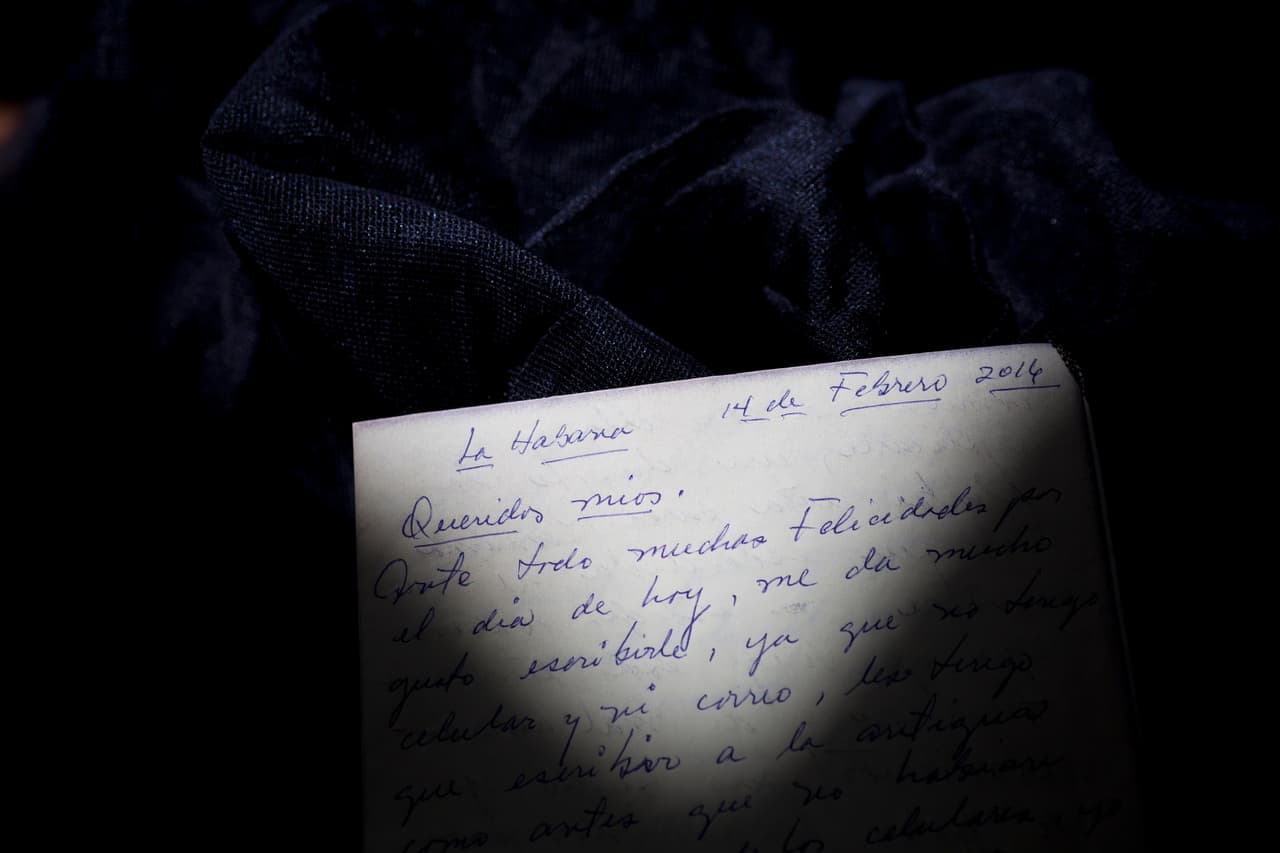 La Habana 14 de Febrero 2016
Queridos mios.
Ante todo muchas Felicidades por
el dia de hoy, me da mucho
gusto escribirle, ya que no tengo
celular y ni correo, les tengo
que escribir a la antigua
como antes que no habian
los celulares, yo